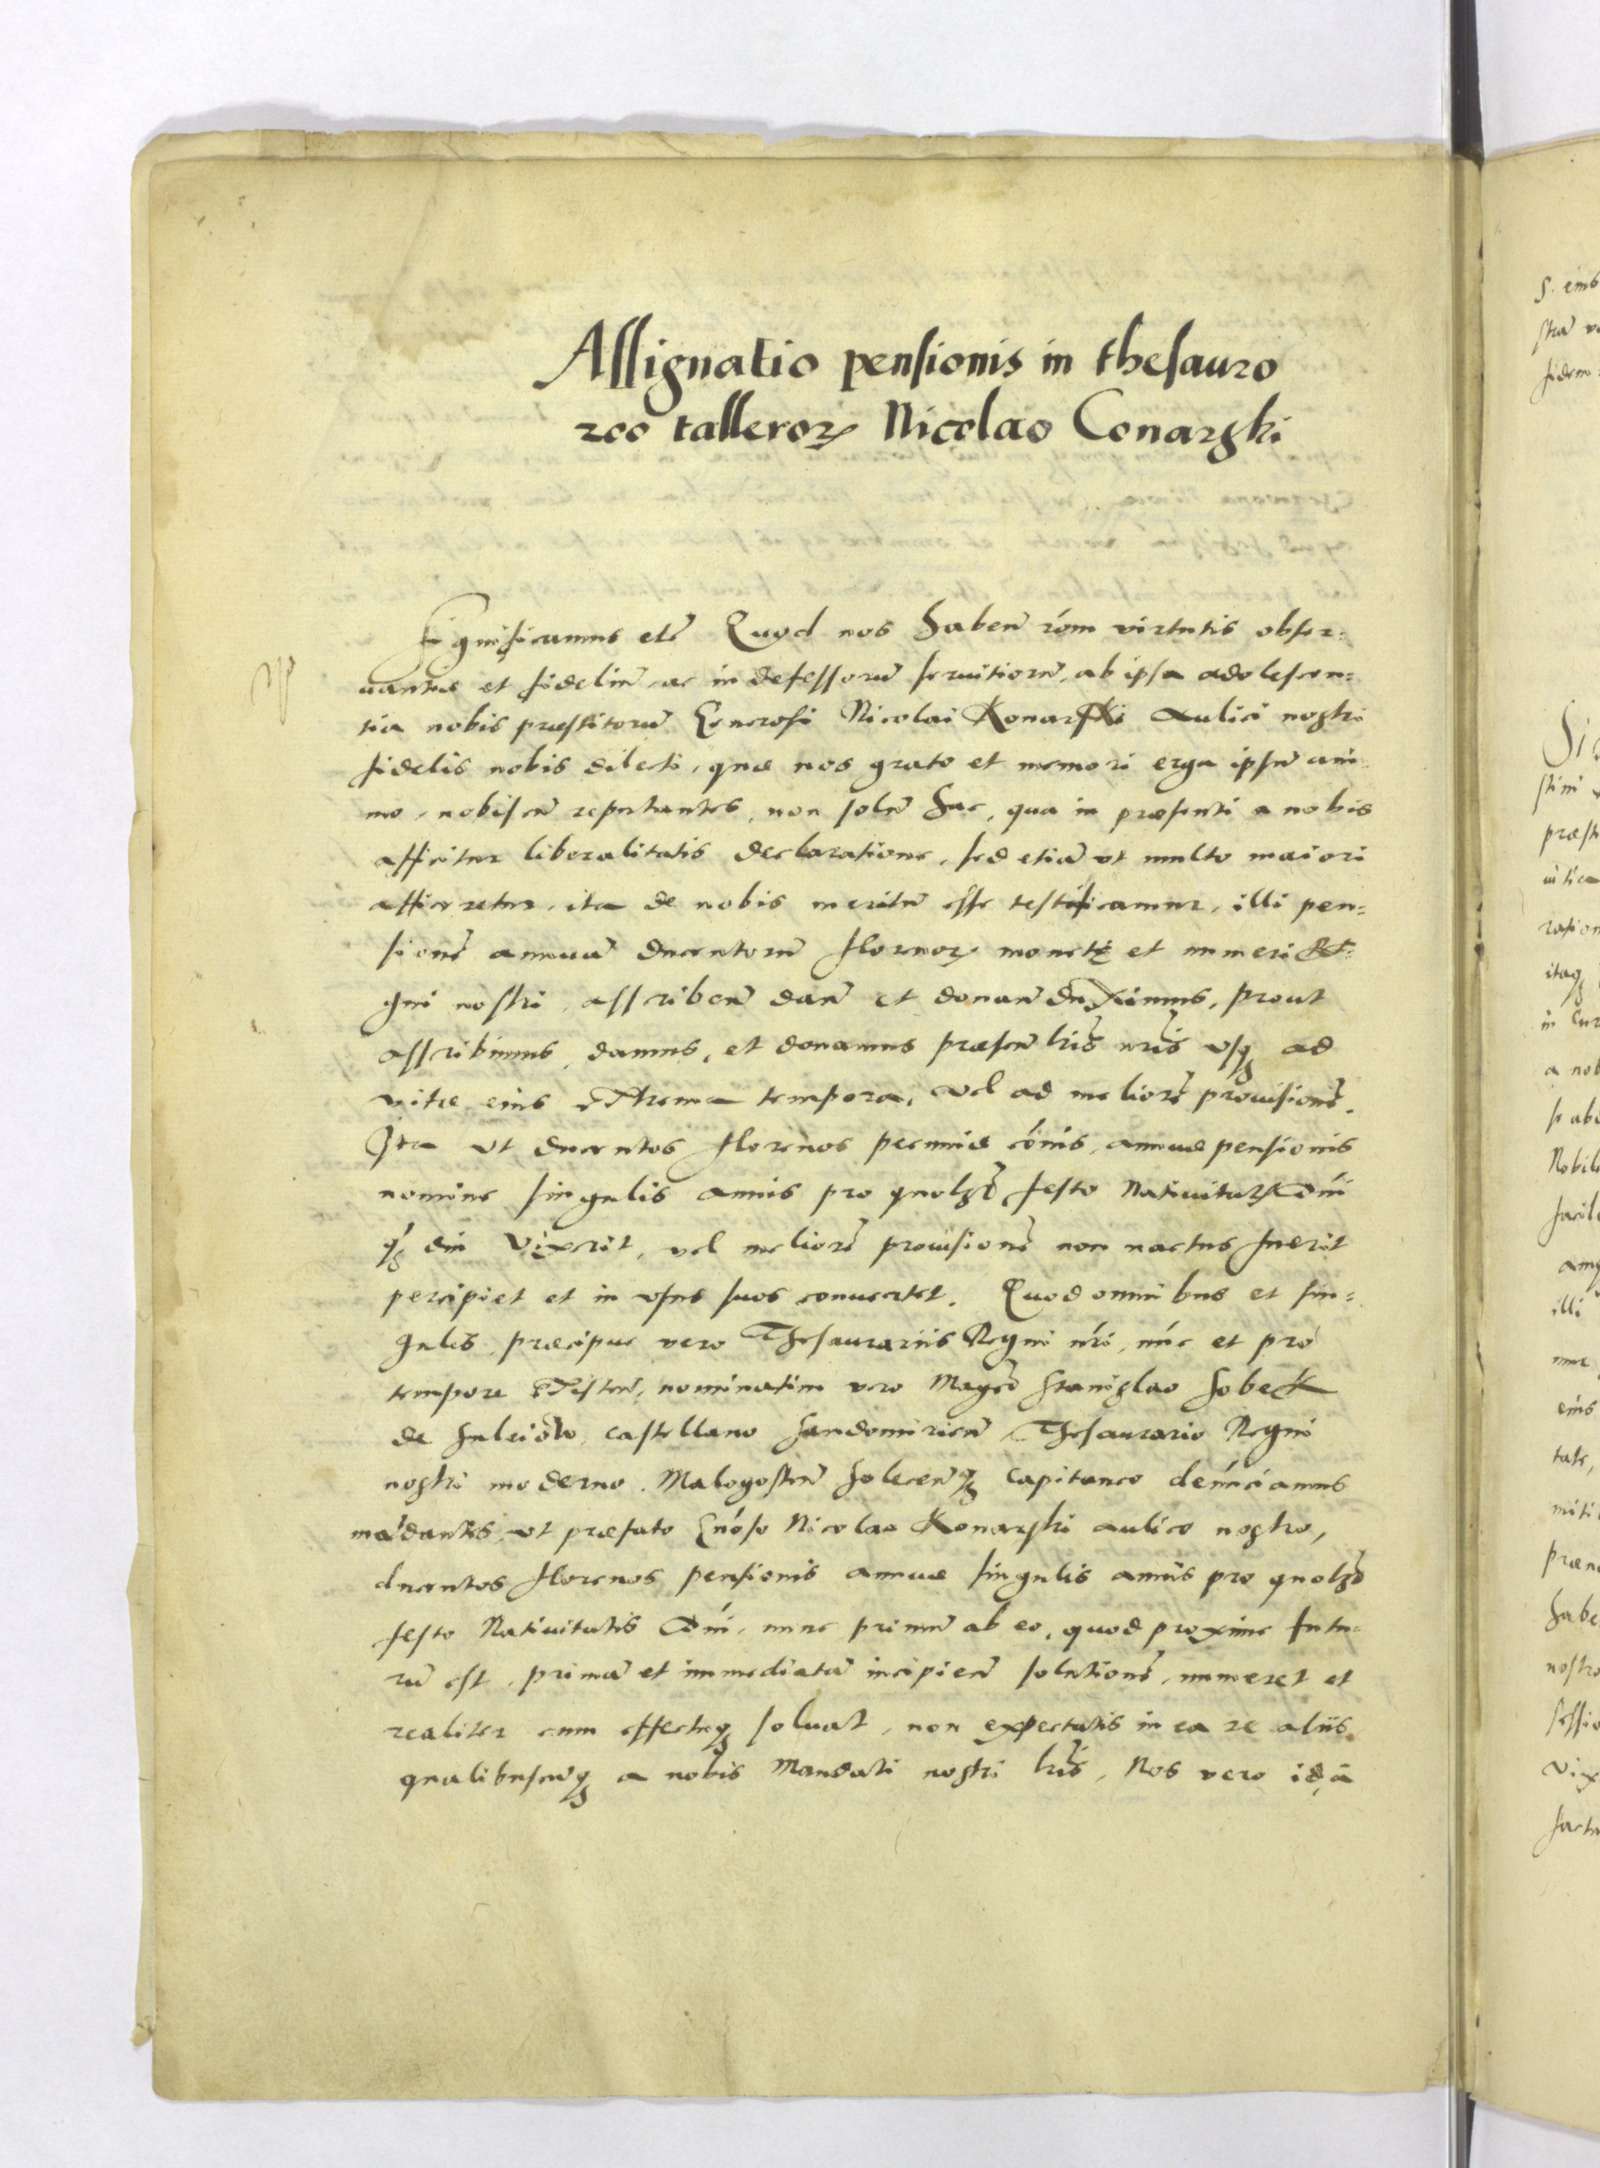 Assignatio pensionis in thesauro
200 talleroꝝ Nicolao Conarski
Significamus etc̃ Quod nos haben̄ rōm virtutis obser:
uantiæ et fideliū ac indefessorū seruitiorū, ab ipsa adolescen:
tia nobis præstitorū Generosi Nicolai Konarski Aulici nostri
fidelis nobis dilecti, quæ nos grato et memori erga ipsū ani
mo, nobiscū reputantes, non solū hac, qua in præsenti a nobis
afficitur liberalitatis declaratione, sed etiā vt multo maiori
afficeretur, ita de nobis meritū esse testificamur, illi pen:
sionē annuā ducentorū florenoꝝ monetę et numeri Re:
gni nostri, asscriben̄ dan̄ et donan̄ duximus, prout
asscribimus, damus, et donamus præsen̄ lr̄is nr̄is vsqꝫ ad
vitæ eius extrema tempora, vel ad meliorē prouisionē.
Ita vt ducentos florenos pecuniæ cōis, annuæ pensionis
nomine singulis annis pro quolꝫt festo Natiuitatis Dn̄i
qꝫ diu vixerit, vel meliorē prouisionē non nactus fuerit
percipiet et in vsus suos conuertet. Quod omnibus et sin:
gulis, præcipue vero Thesaurariis Regni nr̄i, nūc et pro
tempore existen̄, nominatim vero Magco Stanislao Sobek
de Suleiow, castellano Sandomirien̄ Thesaurario Regni
nostri moderno, Malogosten̄ Solecen̄qꝫ Capitaneo denūciamus
mādantes, vt præfato Gnōso Nicolao Konarski aulico nostro,
ducentos florenos pensionis annuæ singulis annis pro quolꝫt
festo Natiuitatis Dn̄i, nunc primū ab eo, quod proxime futu:
rū est, primā et immediatā incipien̄ solutionē, numeret et
realiter cum effectuqꝫ soluat, non expectatis in ea re aliis
qualibuscūqꝫ a nobis Mandati nostri lr̄is, Nos vero id, ā